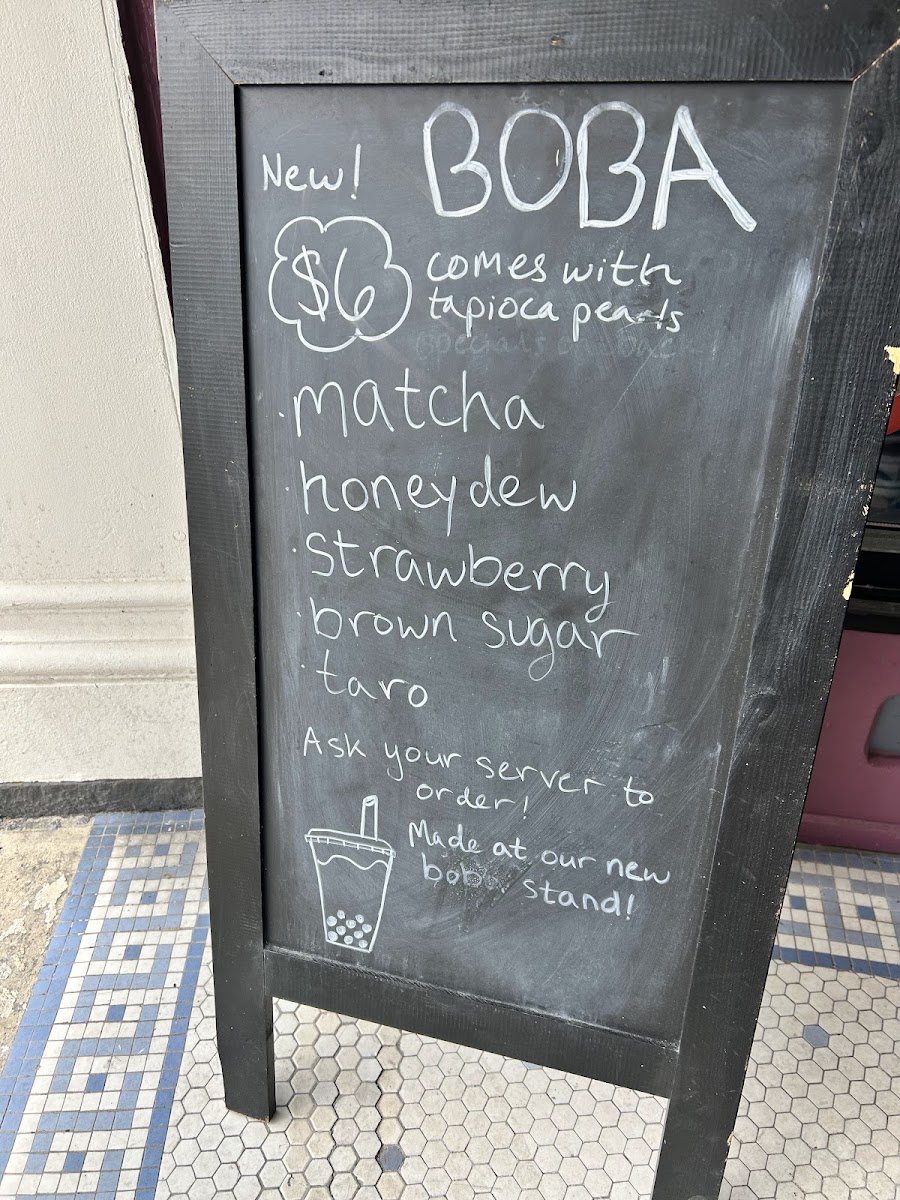 New!
BOBA
$6
comes with
tapioca pearls
· matcha
· honeydew
· strawberry
· brown sugar
· taro
Ask your server to
order!
Made at our new
boba stand!